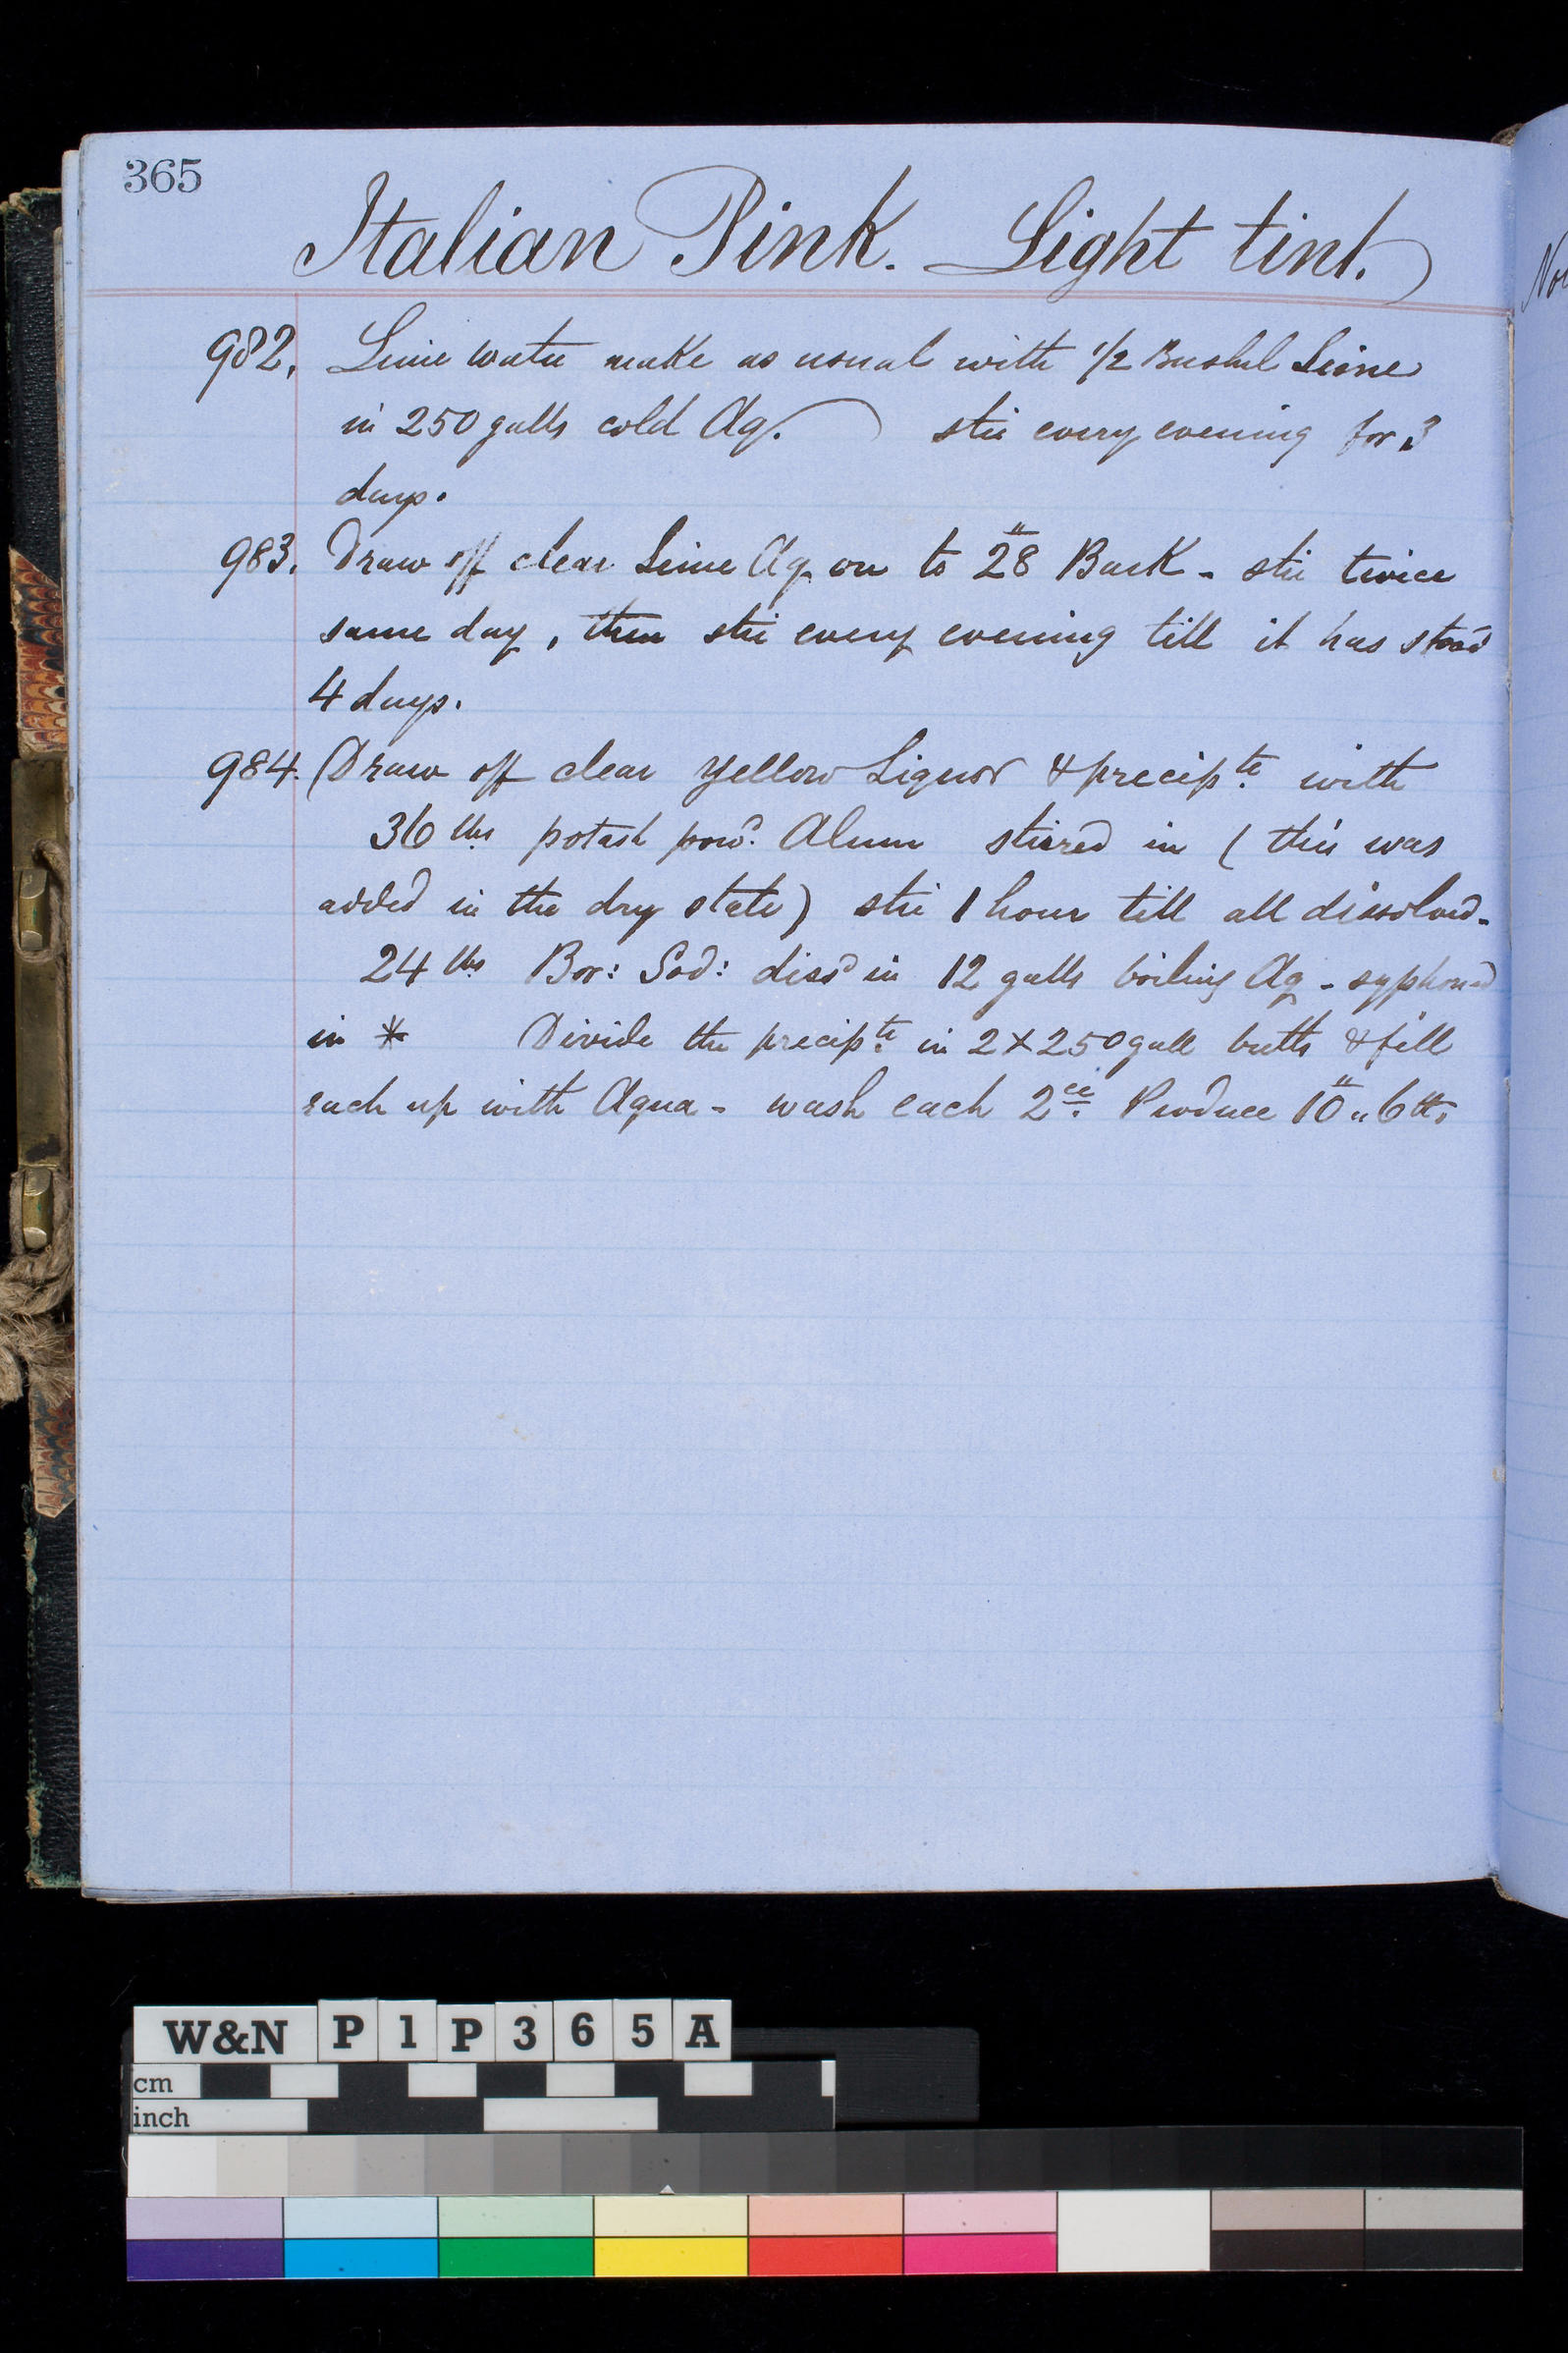 365
Italian Pink. Light tint.
982. Lime water make as usual with 1/2 Bushel Lime
in 250 galls cold Aq. stir every evening for 3
days.
983. Draw off clear Lime Aq on to 28" Bark - stir twice
same day, then stir every evening till it has stood
4 days.
984. (Draw off clear yellow Liquor & precipte. with
36 lbs potash powd. Alum stirred in (this was
added in the dry state) stir 1 hour till all dissolved -
24 lbs Bor: Sod: dissd in 12 galls boiling Aq - syphoned
in * Divide the precipte. in 2 x 250 gall butts & fill
each up with Aqua - wash each 2ce. Produce 10" " 6 lb.
No
W&N P1P365A
cm
inch